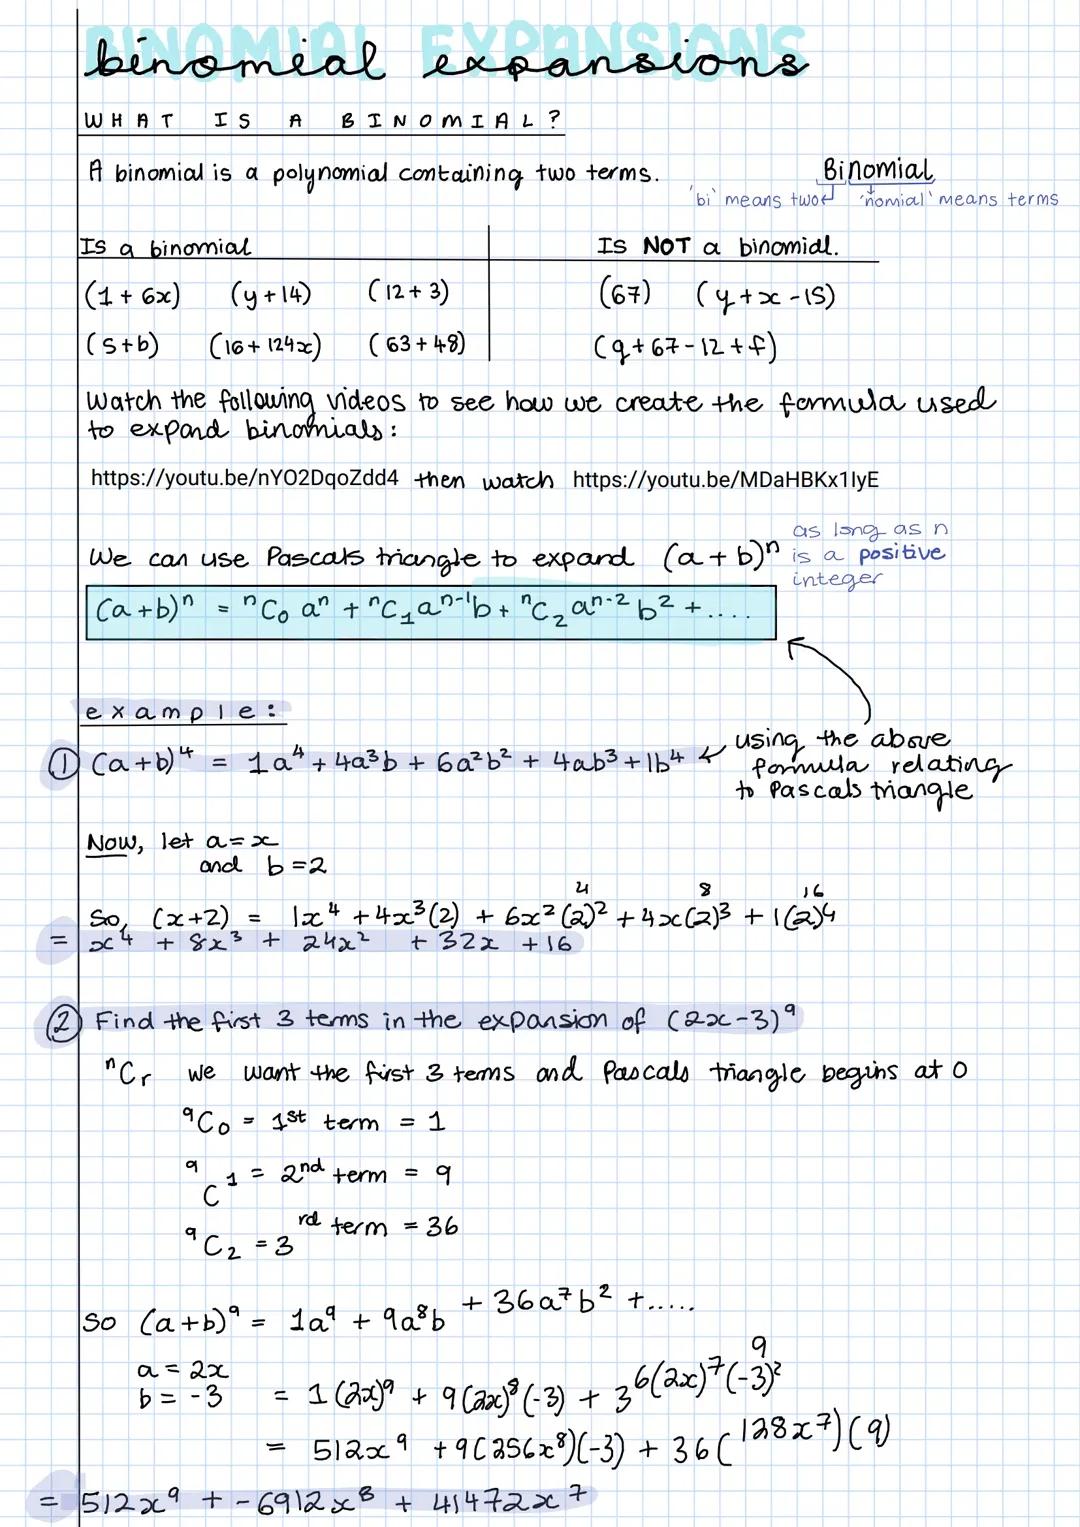 BINOMIAL EXPANSIONS
binomial expansions
WHAT IS A BINOMIAL?
A binomial is a polynomial containing two terms.
Binomial
'bi' means two 'nomial' means terms
Is a binomial
Is NOT a binomial.
(1 + 6x) (y + 14) (12 + 3)
(67) (y + x - 15)
(5 + b) (16 + 124x) (63 + 48)
(q + 67 - 12 + f)
Watch the following videos to see how we create the formula used
to expand binomials:
https://youtu.be/nYO2DqoZdd4 then watch https://youtu.be/MDaHBKx1lyE
We can use Pascals triangle to expand (a + b)ⁿ
as long as n
is a positive
integer
(a + b)ⁿ = ⁿC₀ aⁿ + ⁿC₁ aⁿ⁻¹b + ⁿC₂ aⁿ⁻² b² + ....
example:
① (a + b)⁴ = 1a⁴ + 4a³b + 6a²b² + 4ab³ + 1b⁴
using the above
formula relating
to Pascals triangle
Now, let a = x
and b = 2
4 8 16
So, (x+2) = 1x⁴ + 4x³(2) + 6x²(2)² + 4x(2)³ + 1(2)⁴
= x⁴ + 8x³ + 24x² + 32x + 16
② Find the first 3 terms in the expansion of (2x - 3)⁹
ⁿCr we want the first 3 terms and Pascals triangle begins at 0
⁹C₀ = 1st term = 1
⁹C₁ = 2nd term = 9
⁹C₂ = 3rd term = 36
So (a + b)⁹ = 1a⁹ + 9a⁸b + 36a⁷b² + .....
a = 2x
b = -3
9
= 1(2x)⁹ + 9(2x)⁸(-3) + 36(2x)⁷(-3)²
= 512x⁹ + 9(256x⁸)(-3) + 36(128x⁷)(9)
= 512x⁹ + -6912x⁸ + 41472x⁷